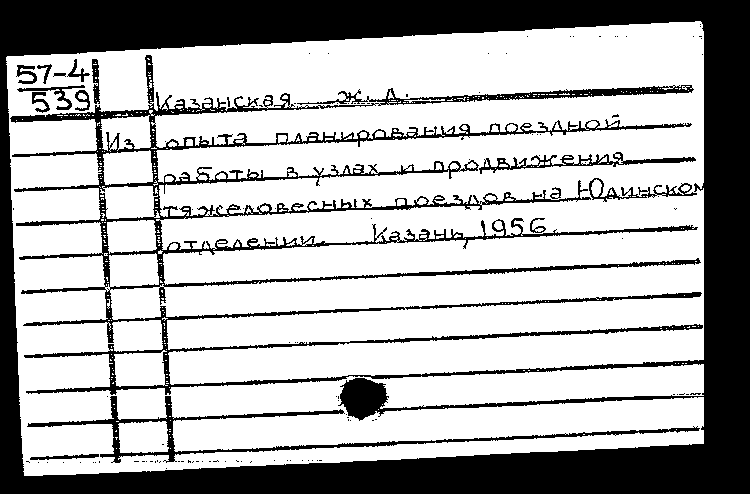 57-4
539
Казанская ж. д.
Из опыта планирования поездной
работы в узлах и продвижения
тяжеловесных поездов на Юдинском
отделении. Казань, 1956.